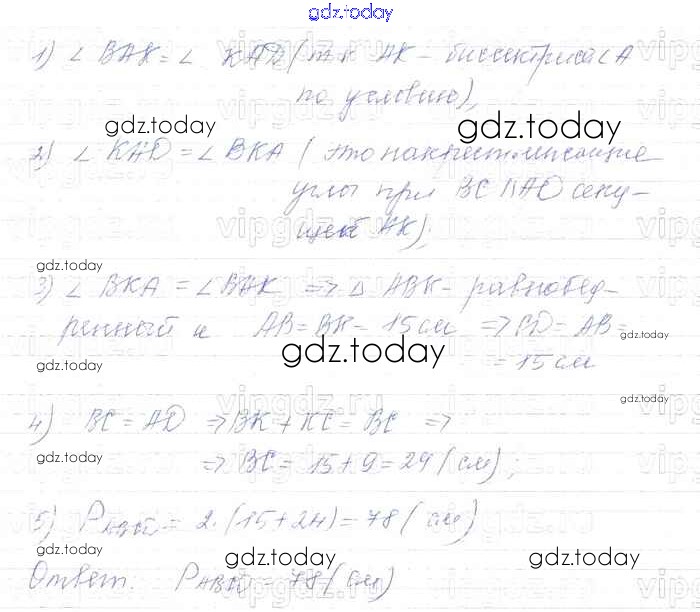 gdz.today
1) ∠ BAK = ∠ KAD (т.к AK - биссектриса ∠A
по условию),
gdz.today gdz.today
2) ∠ KAD = ∠ BKA (это накрест лежащие
углы при BC || AD секу-
щей AK);
gdz.today
3) ∠ BKA = ∠ BAK => △ ABK - равнобед-
ренный и AB = BK = 15 см => CD = AB =
gdz.today
= 15 см
gdz.today
gdz.today
4) BC = AD => BK + KC = BC =>
gdz.today
=> BC = 15 + 9 = 24 (см);
5) P = 2·(15+24) = 78 (см)
gdz.today
gdz.today gdz.today
Ответ: = 78 (см)